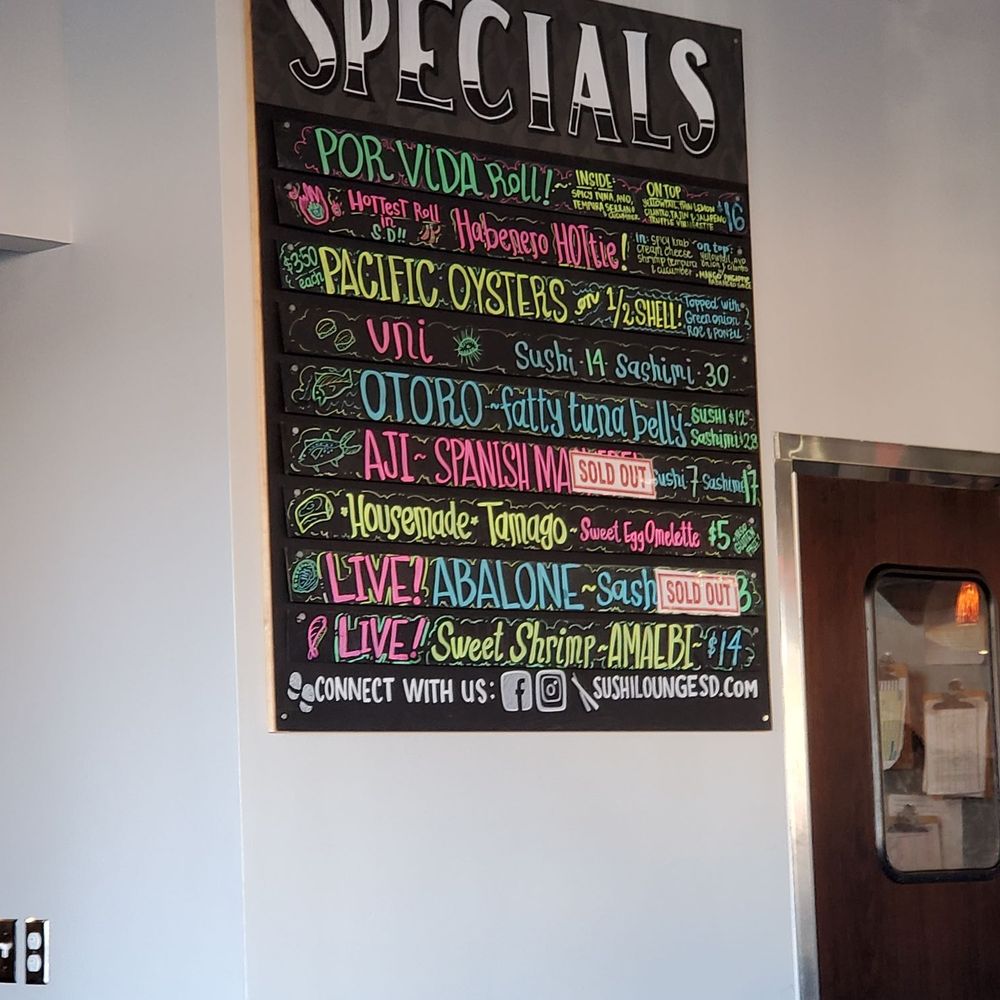 SPECIALS
POR VIDA ROLL!~ INSIDE: SPICY TUNA, AVO, TEMPURA SERRANO & CUCUMBER ON TOP YELLOWTAIL, THIN LEMON CILANTRO, TAJIN & JALAPEÑO $16
HOTTEST ROLL in S.D!! Habenero HOTtie! in: spicy krab cream cheese shrimp tempura & cucumber on top: yellowtail, avo MANGO PINEAPPLE HABANERO SAUCE
$3.50 each PACIFIC OYSTERS on 1/2 SHELL! Topped with Green onion ROE & PONZU
UNI Sushi 14 Sashimi 30
OTORO ~ fatty tuna belly ~ SUSHI $12 Sashimi $28
AJI ~ SPANISH MA SOLD OUT Sushi 7 Sashimi 17
*Housemade* Tamago ~ Sweet Egg Omelette $5
LIVE! ABALONE ~ Sash SOLD OUT 3
LIVE! Sweet Shrimp ~ AMAEBI ~ $14
CONNECT WITH US: f SUSHILOUNGESD.COM